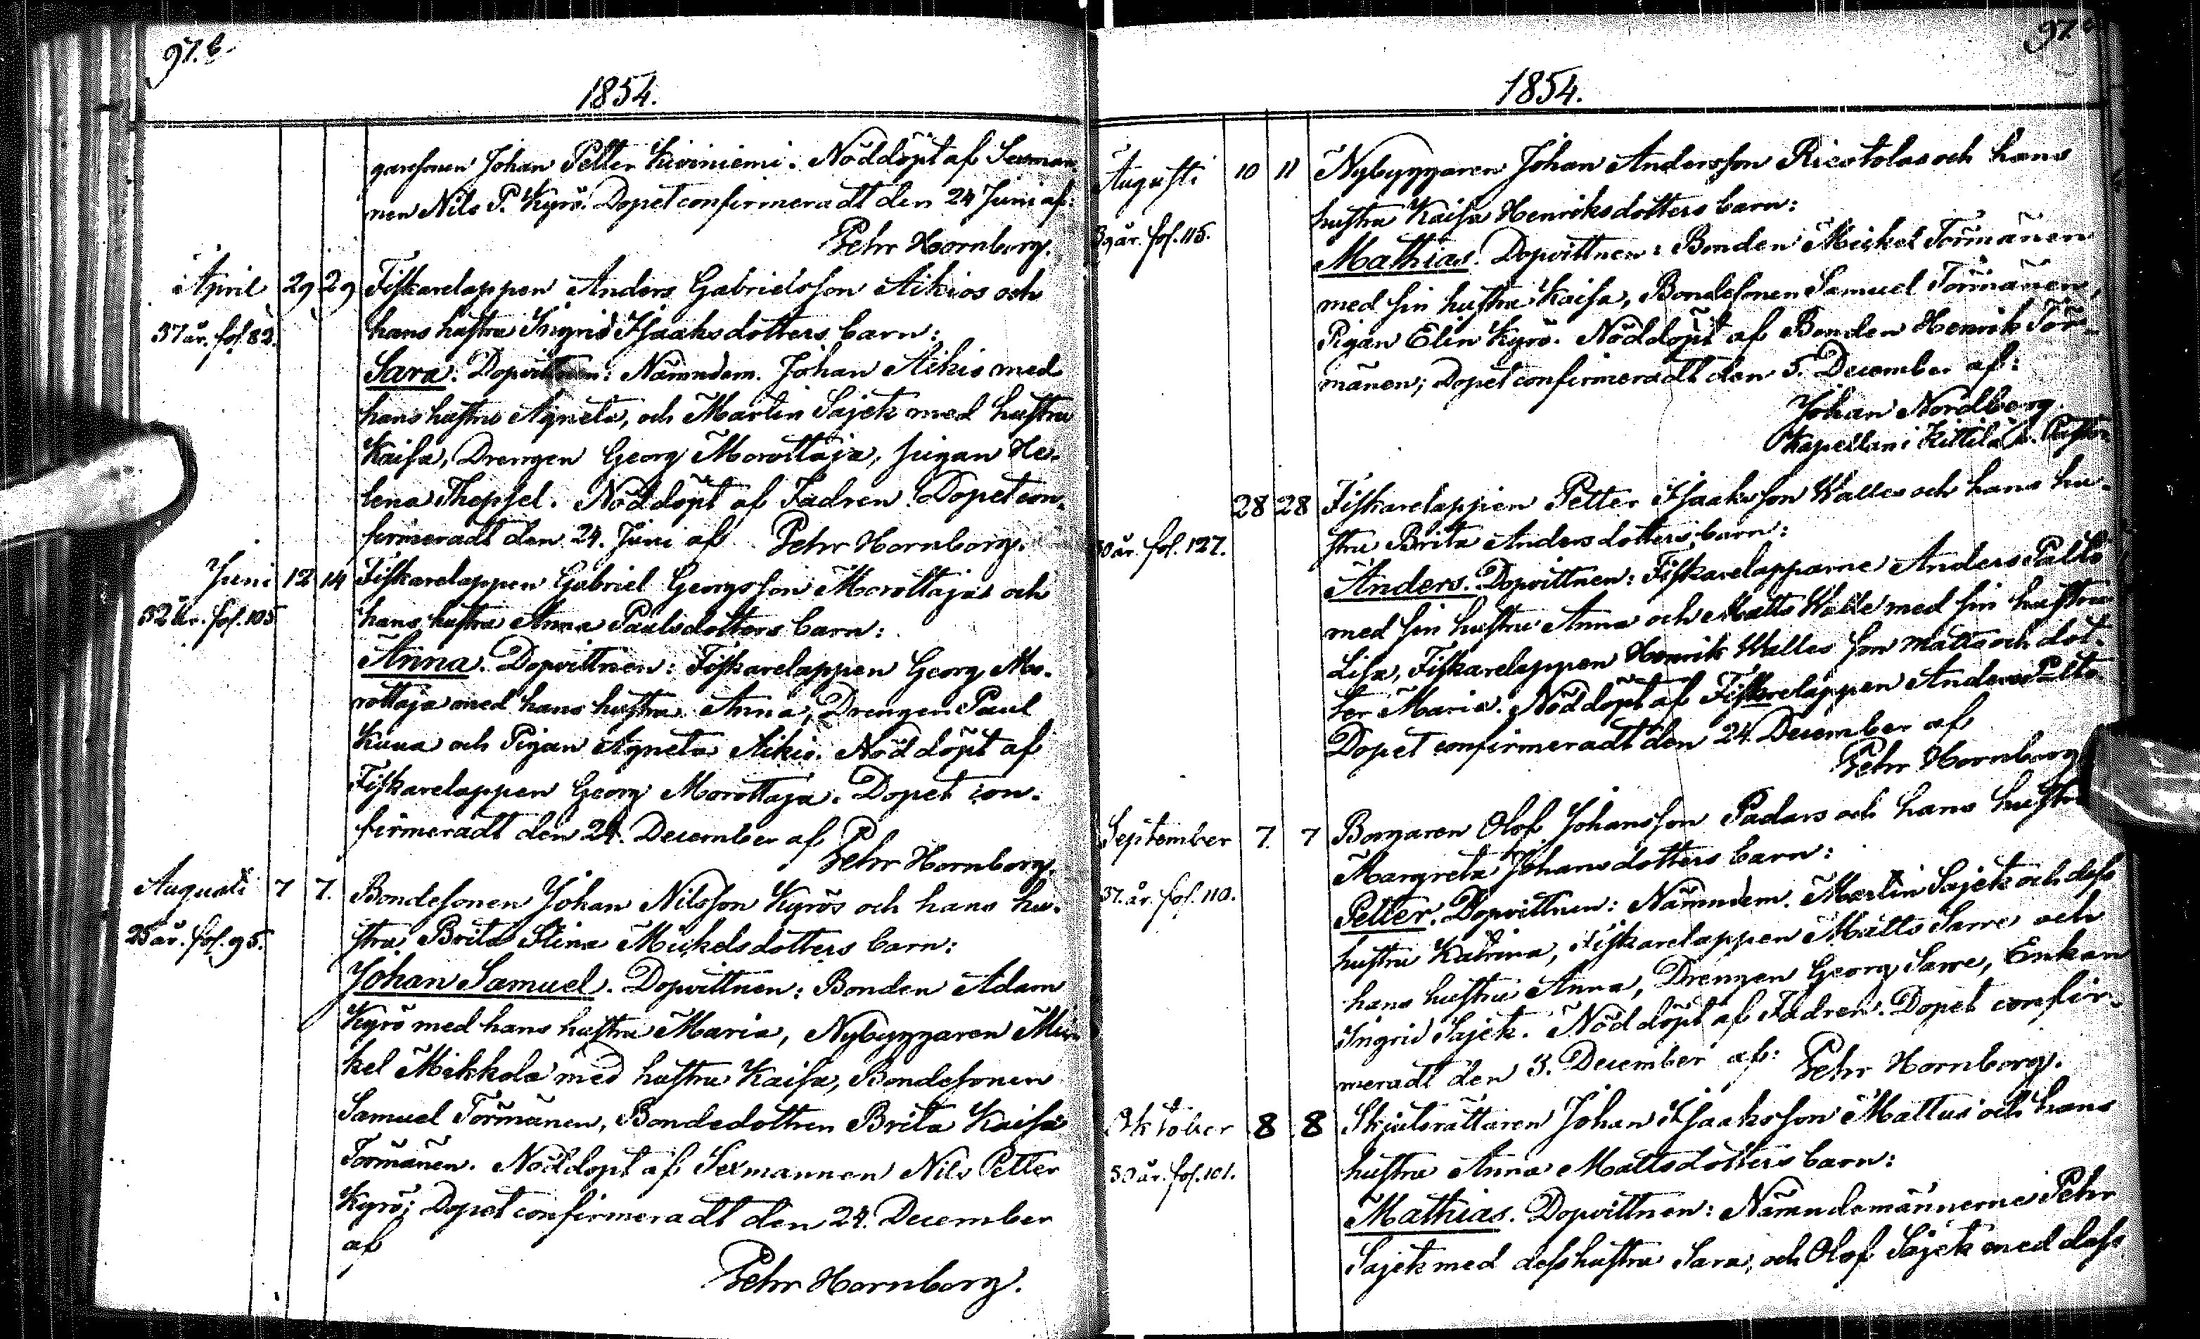 97.b
1854.
garesonen Johan Petter Kiviniemi. Nöddöpt af Sexman-
nen Nils P. Kyrö. Dopet confirmeradt den 24 Juni af:
Pehr Hornborg.
April 29 29 Fiskarelappen Anders Gabrielsson Aikios och
37 år. fol. 82. hans hustru Ingrid Isaaksdotters barn:
Sara. Dopvittnen: Nämndem. Johan Aikio med
hans hustru Agneta, och Martin Sajek med hustru
Kaisa, Drengen Georg Morottaja, pigan He-
lena Thepsel. Nöddöpt af Fadren. Dopet con-
firmeradt den 24. Juni af Pehr Hornborg.
Juni 12 14 Fiskarelappen Gabriel Georgsson Morottajas och
32 år. fol. 105 hans hustru Anna Paulsdotters barn:
Anna. Dopvittnen: Fiskarelappen Georg Mo-
rottaja med hans hustru Anna, Drengen Paul
Kuua och Pigan Agneta Aikio. Nöddöpt af
Fiskarelappen Georg Morottaja. Dopet con-
firmeradt den 24. December af
Pehr Hornborg.
Augusti 7 7. Bondesonen Johan Nilsson Kyrös och hans hu-
25 år. fol. 95. stru Brita Stina Mickelsdotters barn:
Johan Samuel. Dopvittnen: Bonden Adam
Kyrö med hans hustru Maria, Nybyggaren Mic-
kel Mikkola med hustru Kaisa, Bondesonen
Samuel Törmänen, Bondedottren Brita Kaisa
Törmänen. Nöddöpt af Sexmannen Nils Petter
Kyrö; Dopet confirmeradt den 24. December
af
Pehr Hornborg.
97
1854.
Augusti 10 11 Nybyggaren Johan Andersson Ricstolas och hans
hustru Kaisa Henriksdotters barn:
39 år. fol. 115.
Mathias. Dopvittnen: Bonden Mickel Törmänen
med sin hustru Kaisa, Bondesonen Samuel Törmänen,
Pigan Elin Kyrö. Nöddöpt af Bonden Henrik Tör-
mänen; Dopet confirmeradt den 5. December af:
Johan Nordberg.
Kapellan i Kittilä
28 28 Fiskarelappen Petter Isaaksson Walles och hans hu-
30 år. fol. 127. stru Brita Andersdotters barn:
Anders. Dopvittnen: Fiskarelapparne Anders Palto
med sin hustru Anna och Matts Walle med sin hustru
Lisa, Fiskarelappen Henrik Walles son Matts och dot-
ter Maria. Nöddöpt af Fiskarelappen Anders Palto.
Dopet confirmeradt den 24. December af
Pehr Hornborg
September 7. 7 Borgaren Olof Johansson Padars och hans hustru
Margreta Johansdotters barn:
37. år. fol. 110.
Petter. Dopvittnen: Nämndem. Martin Sajek och dess
hustru Katrina, Fiskarelappen Matts Sarre och
hans hustru Anna, Drengen Georg Sarre, Enkan
Ingrid Sajek. Nöddöpt af Fadren. Dopet confir-
meradt den 3. December af: Pehr Hornborg.
Oktober 8 8 Skjutsrättaren Johan Isaaksson Mattus och hans
30 år. fol. 101. hustru Anna Mattsdotters barn:
Mathias. Dopvittnen: Nämndemännerne Pehr
Sajek med dess hustru Sara, och Olof Sajek med dess